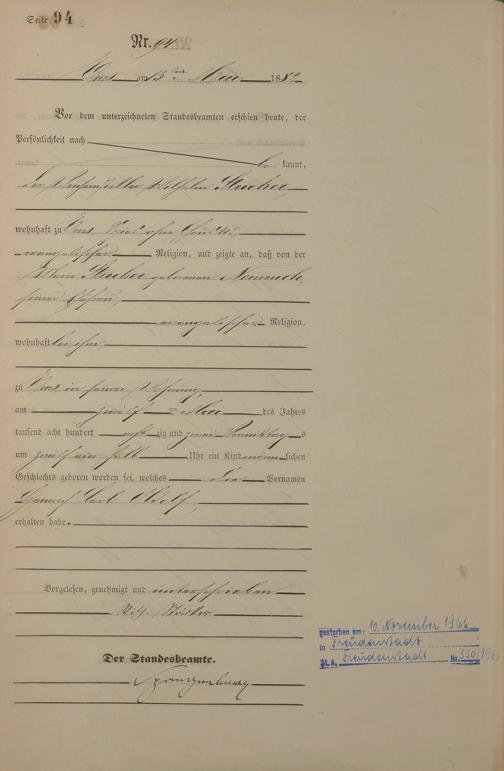 Seite 94
Nr. 94
Ems am 13ten Mai 1882
Vor dem unterzeichneten Standesbeamten erschien heute, der
Persönlichkeit nach
be kannt,
der Wilhelm
wohnhaft zu Ems,
evangelischer Religion, und zeigte an, daß von der
Maria geborenen
seiner Ehefrau,
evangelischer Religion,
wohnhaft bei ihm,
zu Ems in seiner Wohnung,
am zwölf ten Mai des Jahres
tausend acht hundert acht zig und zwei Vormittag s
um zwölf ein halb Uhr ein Kind männ lichen
Geschlechts geboren worden sei, welches die Vornamen
Heinrich Carl Adolf
erhalten habe.
Vorgelesen, genehmigt und unterschrieben
Wilh.
Der Standesbeamte.
gestorben am: 10. November 1966
in Freudenstadt
St.A. Freudenstadt Nr. 330/196